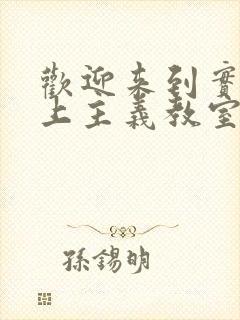 歡迎来到實
上主義教室
孫錫明